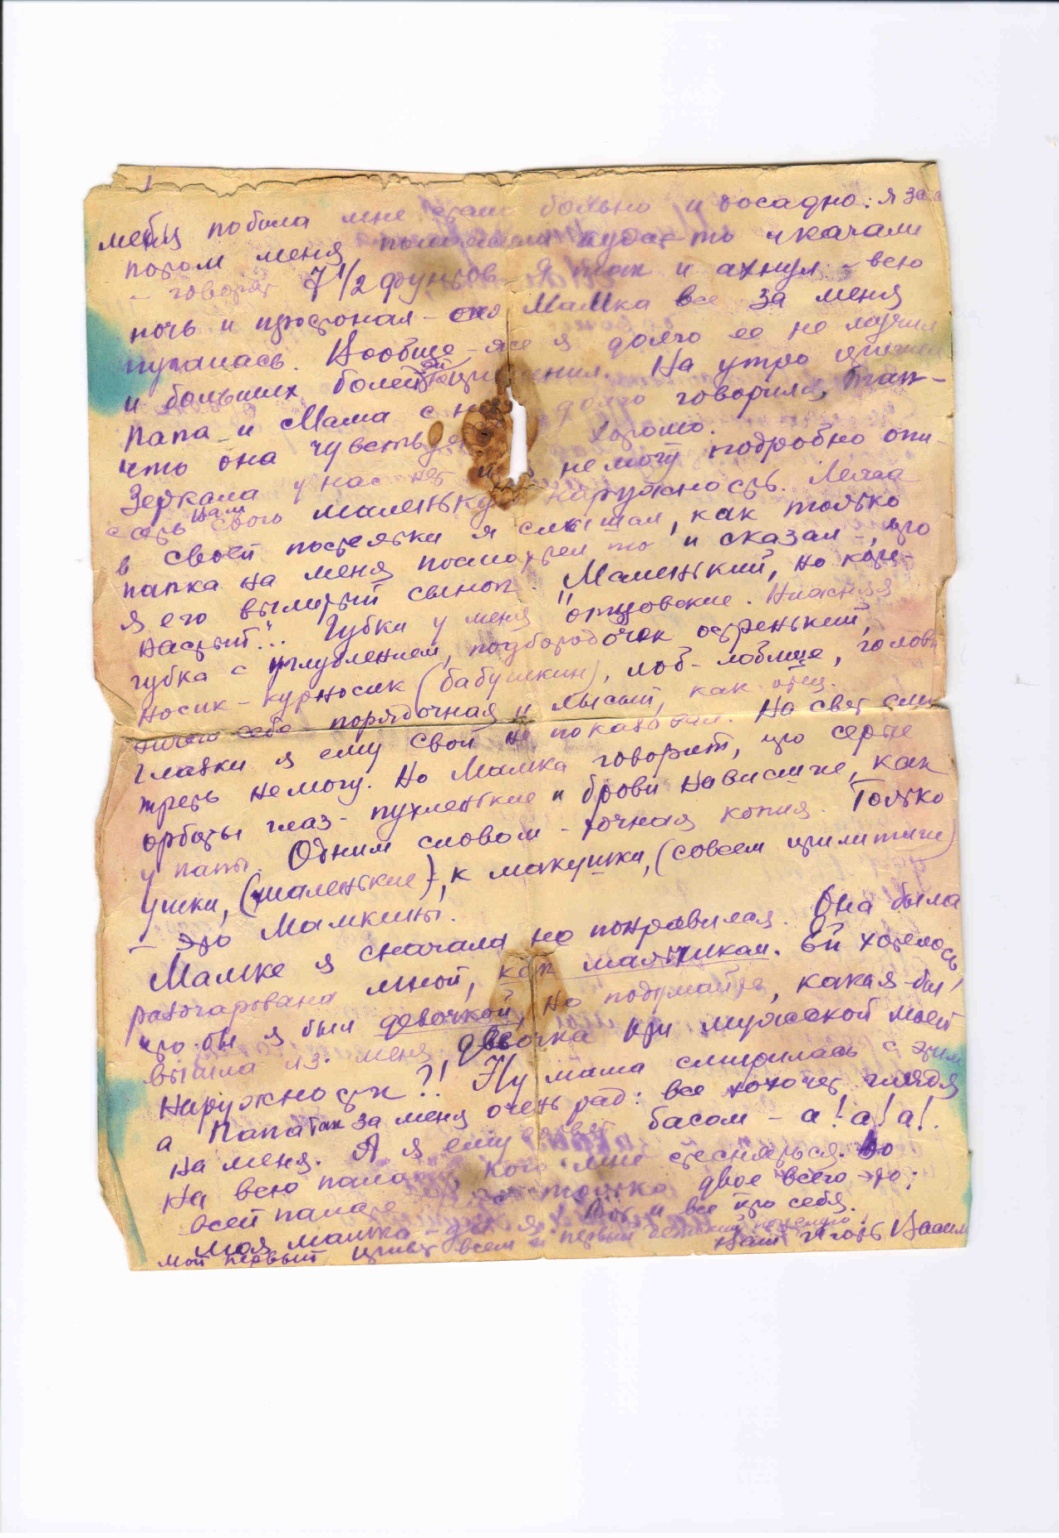 меня побила мне стало больно и досадно: я за
потом меня положили куда-то и качали
- говорят 7 1/2 фунтов. Я так и ахнул - всю
ночь и простонал - Мамка все за меня
пугалась. Вообще я долго ее не мучил
и больших болей На утро пришел
Папа и Мама с долго говорили,
что она чувствует хорошо.
Зеркала у нас нет и не могу подробно опи-
сать Вам свою маленькую наружность. Лежа
в своей постельки я слышал, как только
папка на меня посмотрел то и сказал -, что
я его вылитый сынок. "Маленький, но коре-
настый". Губки у меня отцовские. Нижняя
губка с углублением, подбородочек остренький,
носик - курносик (бабушкин), лоб - лобище, голова
ничего себе порядочная и лысый, как отец.
Глазки я ему свои не показывал. На свет смо-
треть не могу. Но Мамка говорит, что серые
орбиты глаз - пухленькие и брови нависшие, как
у папы. Одним словом - точная копия. Только
ушки, (маленькие), к макушки, (совсем прилипшие)
- это Мамкины.
Мамке я сначала не понравился. Она была
разочарована мной, как мальчиком. Ей хотелось,
что-бы я был девочкой, но подумайте, какая-бы
вышла из меня девочка при мужской моей
наружности?! Ну мама смирилась с этим
а Папа так за меня очень рад: все хохочет глядя
на меня. А я ему басом - а! а! а!
На всю палату, кого мне стесняться. Во
всей палате только двое всего-то;
моя мамка - да я. Вот и все про себя.
мой первый привет всем и первый
Ваш Игорь